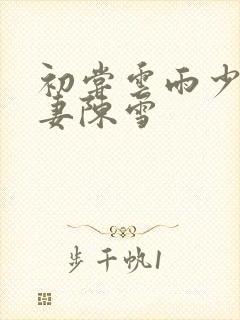 初尝云雨少
妻陈雪
步千帆1